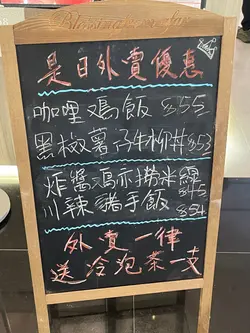 是日外賣優惠
咖哩鴻飯 $55
黑椒薯乃牛柳丼 $53
炸醬鴻亦撈米線 $45
川辣豬手飯 $54
外賣一律
送冷泡茶一支